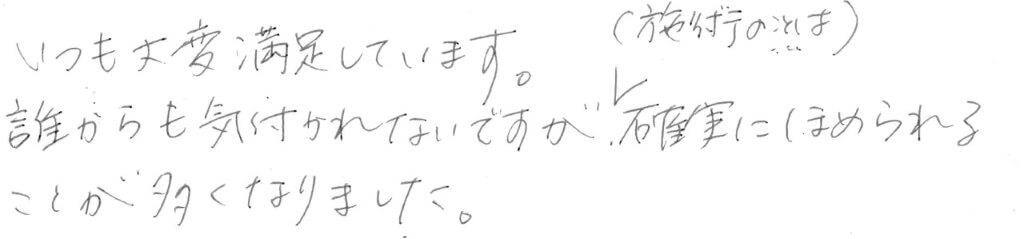 (施術のことは)
いつも大変満足しています。
誰からも気付かれないですが、確実にほめられる
ことが多くなりました。